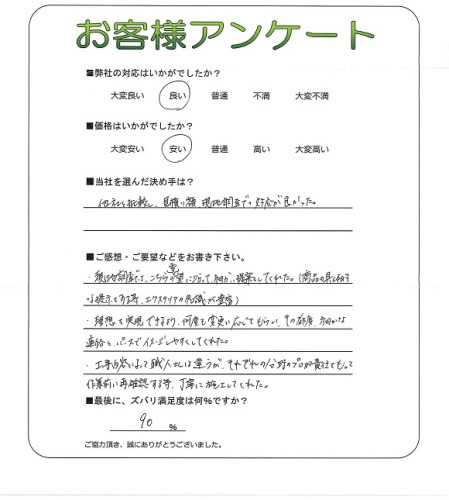 お客様アンケート
■弊社の対応はいかがでしたか？
大変良い 良い 普通 不満 大変不満
■価格はいかがでしたか？
大変安い 安い 普通 高い 大変高い
■当社を選んだ決め手は？
他社と比較し、見積り額、現地調査での対応が良かった。
■ご感想・ご要望などをお書き下さい。
・現地調査では、こちらの要望に沿って細かく提案してくれた。(商品の見本
を提示する等、エクステリアの知識が豊富)
・理想を実現できるよう、何度も変更に応じてもらい、その都度、細かな
連絡と、パースでイメージしやすくしてくれた。
・工事内容によって職人さんは違うが、それぞれの分野のプロが責任をもって
作業前に再確認する等、丁寧に施工してくれた。
■最後に、ズバリ満足度は何%ですか？
90 %
ご協力頂き、誠にありがとうございました。